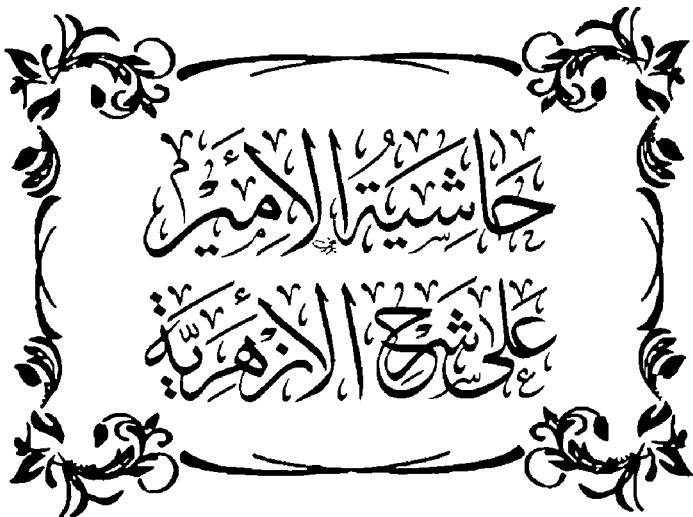 حَاشِيَةُ الأَمِيْرِ
عَلَى شَرْحِ الأَزْهَرِيَّةِ